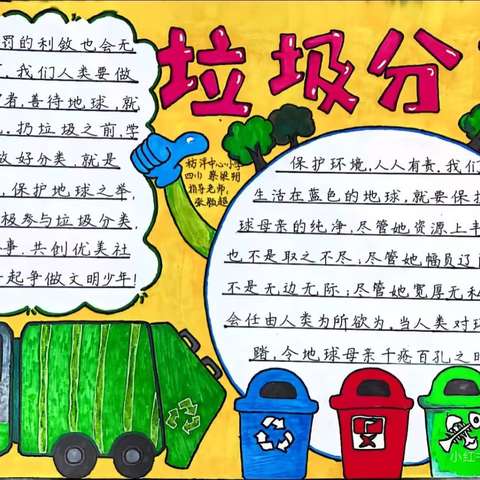 垃圾分
罚的利敛也会无
，我们人类要做
者，善待地球，就
。扔垃圾之前，学
做好分类，就是
，保护地球之举，
极参与垃圾分类，
事，共创优美社
起争做文明少年！
枋洋中心小学
四(1)
指导老师：
保护环境，人人有责。我们
生活在蓝色的地球，就要保护
球母亲的纯净，尽管她资源上丰
也不是取之不尽；尽管她幅员辽阔
不是无边无际；尽管她宽厚无私
会任由人类为所欲为，当人类对环
踏，令地球母亲千疮百孔之时
小红书